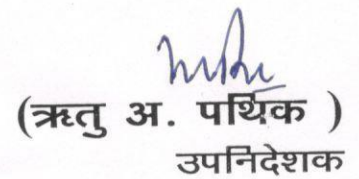 (ऋतु अ. पथिक )
उपनिदेशक